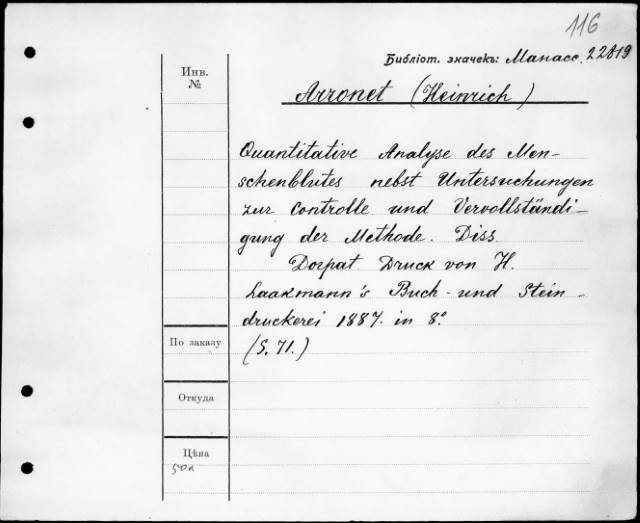 116
Библіот. значекъ: Манасс. 22819
Инв.
№
Arronet (Heinrich)
Quantitative Analyse des Men-
schenblutes nebst Untersuchungen
zur Controlle und Vervollständi-
gung der Methode. Diss.
Dorpat. Druck von H.
Laakmann's Buch- und Stein-
druckerei 1887. in 8º.
(S. 71.)
По заказу
Откуда
Цѣна
50к